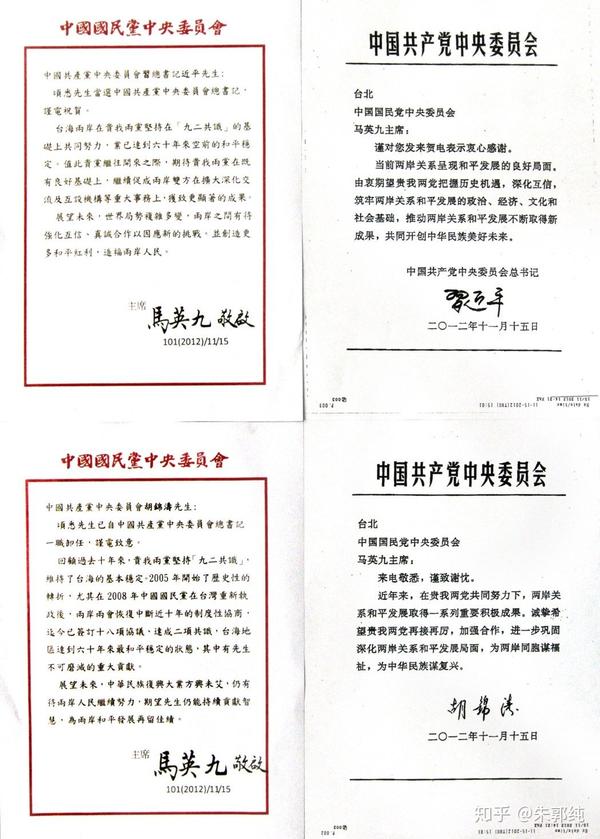 中國國民黨中央委員會
中國共產黨中央委員會習總書記近平先生:
頃悉先生當選中國共產黨中央委員會總書記,
謹電祝賀。
台海兩岸在貴我兩黨堅持在「九二共識」的基
礎上共同努力,業已達到六十年來空前的和平穩
定。值此貴黨繼往開來之際,期待貴我兩黨在既
有良好基礎上,繼續促成兩岸雙方在擴大深化交
流及互設機構等重大事務上,獲致更顯著的成果。
展望未來,世界局勢複雜多變,兩岸之間有待
強化互信、真誠合作以因應新的挑戰,並創造更
多和平紅利,造福兩岸人民。
主席
馬英九 敬啟
101(2012)/11/15
中国共产党中央委员会
台北
中国国民党中央委员会
马英九主席:
谨对您发来贺电表示衷心感谢。
当前两岸关系呈现和平发展的良好局面。
由衷期望贵我两党把握历史机遇,深化互信,
筑牢两岸关系和平发展的政治、经济、文化和
社会基础,推动两岸关系和平发展不断取得新
成果,共同开创中华民族美好未来。
中国共产党中央委员会总书记
习近平
二〇一二年十一月十五日
中國國民黨中央委員會
中國共產黨中央委員會胡錦濤先生:
頃悉先生已自中國共產黨中央委員會總書記
一職卸任,謹電致意。
回顧過去十年來,貴我兩黨堅持「九二共識」,
維持了台海的基本穩定。2005年開始了歷史性的
轉折,尤其在2008年中國國民黨在台灣重新執
政後,兩岸兩會恢復中斷近十年的制度性協商,
迄今已簽訂十八項協議、達成二項共識,台海地
區達到六十年來最和平穩定的狀態,其中有先生
不可磨滅的重大貢獻。
展望未來,中華民族復興大業方興未艾,仍有
待兩岸人民繼續努力,期望先生仍能持續貢獻智
慧,為兩岸和平發展再留佳績。
主席
馬英九 敬啟
101(2012)/11/15
中国共产党中央委员会
台北
中国国民党中央委员会
马英九主席:
来电敬悉,谨致谢忱。
近年来,在贵我两党共同努力下,两岸关
系和平发展取得一系列重要积极成果。诚挚希
望贵我两党再接再厉,加强合作,进一步巩固
深化两岸关系和平发展局面,为两岸同胞谋福
祉,为中华民族谋复兴。
胡锦涛
二〇一二年十一月十五日
知乎 @朱郭纯